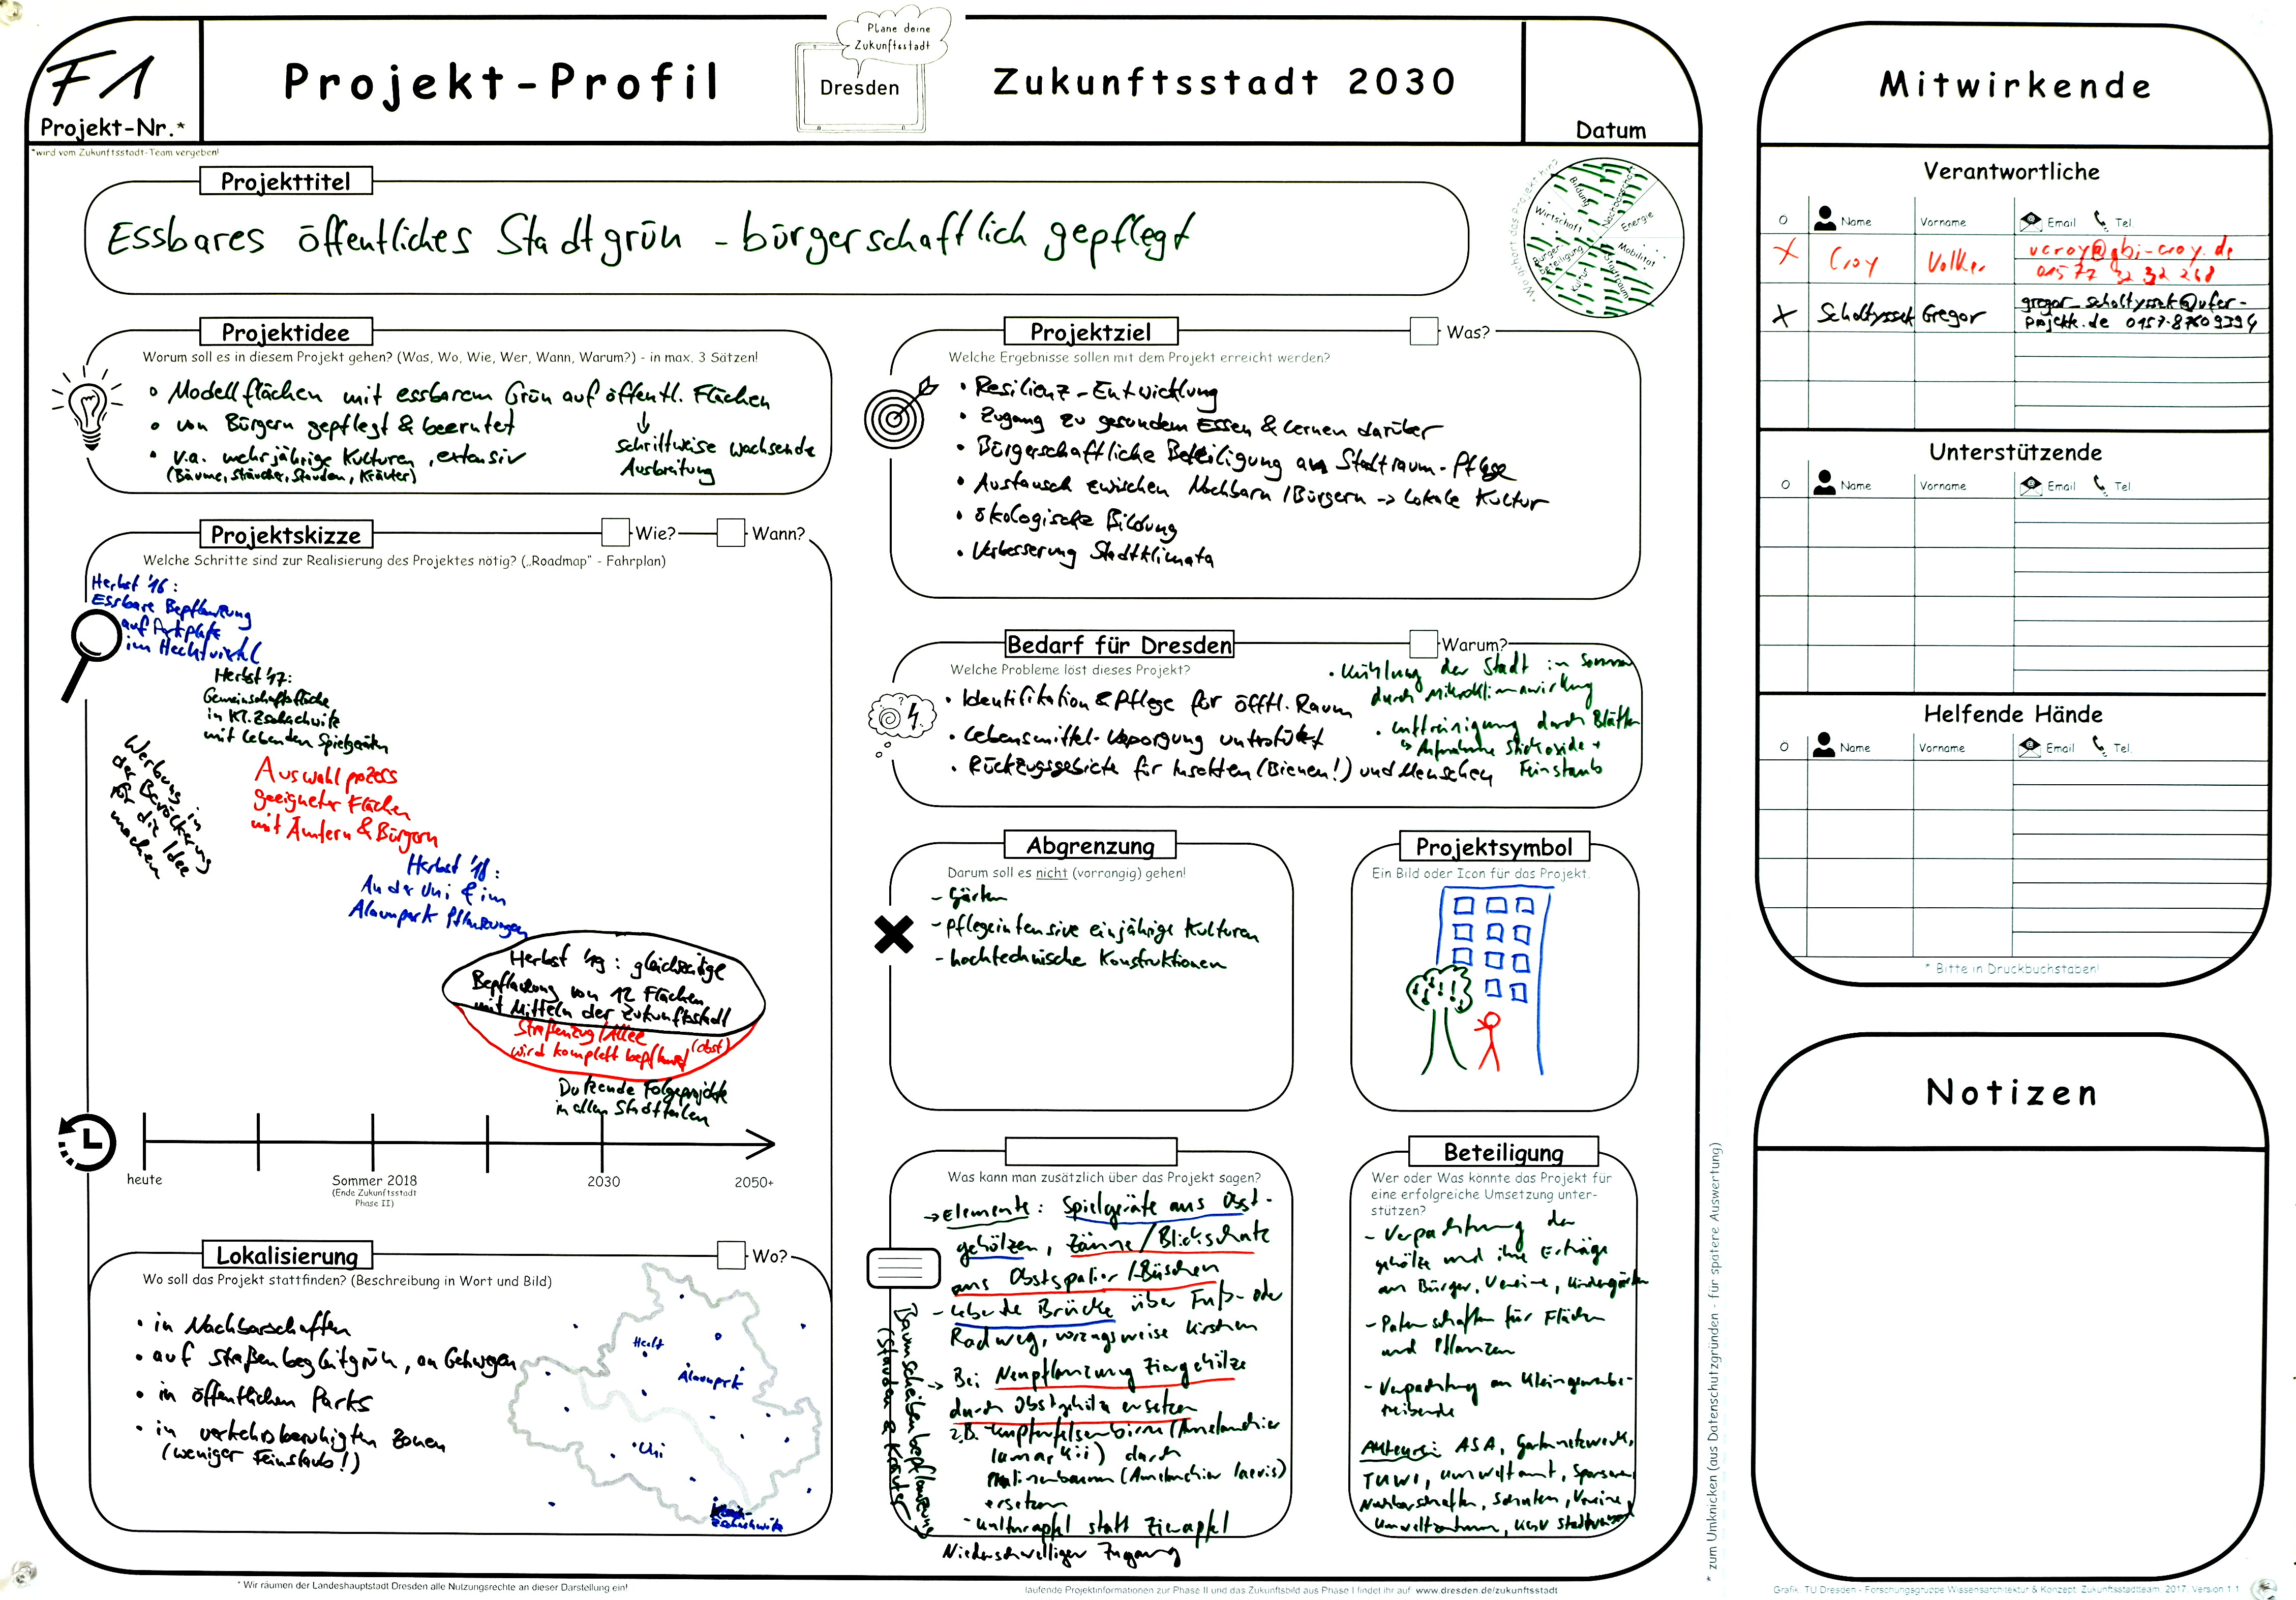 F1
Projekt-Nr.*
*wird vom Zukunftsstadt-Team vergeben!
Projekt-Profil
Plane deine
Zukunftsstadt
Dresden
Zukunftsstadt 2030
Datum
Projekttitel
Essbares öffentliches Stadtgrün - bürgerschaftlich gepflegt
Bildung
Nachbarschaft
Energie
Mobilität
Stadtraum
Kultur
Bürger-
beteiligung
Wirtschaft
Projektidee
Worum soll es in diesem Projekt gehen? (Was, Wo, Wie, Wer, Wann, Warum?) - in max. 3 Sätzen!
• Modellflächen mit essbarem Grün auf öffentl. Flächen
↓
schrittweise wachsende
Ausbreitung
• von Bürgern gepflegt & beerntet
• v.a. mehrjährige Kulturen, extensiv
(Bäume, Sträucher, Stauden, Kräuter)
Projektskizze
Wie?
Wann?
Welche Schritte sind zur Realisierung des Projektes nötig? („Roadmap" - Fahrplan)
Herbst '16:
Essbare Bepflanzung
auf Artplatz
im Hechtviertel
Herbst '17:
Gemeinschaftsfläche
in Kl. Zschachwitz
mit lebenden Spielgeräten
Werbung in
der Bevölkerung
für die Idee
machen
Auswahlprozess
geeigneter Flächen
mit Ämtern & Bürgern
Herbst '18:
An der Uni & im
Alaunpark Pflanzungen
Herbst '19: gleichzeitige
Bepflanzung von 12 Flächen
mit Mitteln der Zukunftsstadt
Straßenzug/Allee
wird komplett bepflanzt (Obst)
Dutzende Folgeprojekte
in allen Stadtteilen
heute
Sommer 2018
(Ende Zukunftsstadt
Phase II)
2030
2050+
Lokalisierung
Wo?
Wo soll das Projekt stattfinden? (Beschreibung in Wort und Bild)
• in Nachbarschaften
• auf Straßenbegleitgrün, an Gehwegen
• in öffentlichen Parks
• in verkehrsberuhigten Zonen
(weniger Feinstaub!)
Hecht
Alaunpark
Uni
Zschachwitz
Projektziel
Was?
Welche Ergebnisse sollen mit dem Projekt erreicht werden?
• Resilienz-Entwicklung
• Zugang zu gesundem Essen & Lernen darüber
• Bürgerschaftliche Beteiligung an Stadtraum-Pflege
• Austausch zwischen Nachbarn/Bürgern -> lokale Kultur
• ökologische Bildung
• Verbesserung Stadtklimata
Bedarf für Dresden
Warum?
Welche Probleme löst dieses Projekt?
• Identifikation & Pflege für öfftl. Raum
• Lebensmittel-Versorgung unterstützt
• Rückzugsgebiete für Insekten (Bienen!) und Menschen
• Kühlung der Stadt im Sommer
durch Mikroklimawirkung
• Luftreinigung durch Blätter
↳ Aufnahme Stickoxide +
Feinstaub
Abgrenzung
Darum soll es nicht (vorrangig) gehen!
- Gärten
- pflegeintensive einjährige Kulturen
- hochtechnische Konstruktionen
Projektsymbol
Ein Bild oder Icon für das Projekt.
Was kann man zusätzlich über das Projekt sagen?
→ Elemente: Spielgeräte aus Obst-
gehölzen, Zäune/Blickschutz
aus Obstspalier/-Büschen
- lebende Brücke über Fuß- oder
Radweg, vorzugsweise Kirschen
→ Bei Neupflanzung Ziergehölze
durch Obstgehölze ersetzen
z.B. Kupferfelsenbirne (Amelanchier
lamarkii) durch
Pralinenbaum (Amelanchier laevis)
ersetzen
- Kulturapfel statt Zierapfel
Niederschwelliger Zugang
Baumscheibenbepflanzung
(Stauden & Kräuter)
Beteiligung
Wer oder Was könnte das Projekt für
eine erfolgreiche Umsetzung unter-
stützen?
- Verpachtung der
gehölze und ihre Erträge
an Bürger, Vereine, Kindergärten
- Patenschaften für Flächen
und Pflanzen
- Verpachtung an Kleingewerbe-
treibende
Akteure: ASA, Gartennetzwerk,
TUWI, Umweltamt,
Nachbarschaften, Schulen, Vereine,
Umweltzentrum,
* Wir räumen der Landeshauptstadt Dresden alle Nutzungsrechte an dieser Darstellung ein!
laufende Projektinformationen zur Phase II und das Zukunftsbild aus Phase I findet ihr auf: www.dresden.de/zukunftsstadt
* zum Umknicken (aus Datenschutzgründen - für spätere Auswertung)
Mitwirkende
Verantwortliche
Name
Vorname
Email
Tel.
X Croy Volker vcroy@gbi-croy.de
01577 32 32 268
X Scholtyssek Gregor gregor_scholtyssek@ufer-
projekte.de 0157-87609394
Unterstützende
Name
Vorname
Email
Tel.
Helfende Hände
Name
Vorname
Email
Tel.
* Bitte in Druckbuchstaben!
Notizen
Grafik: TU Dresden - Forschungsgruppe Wissensarchitektur & Konzept: Zukunftsstadtteam, 2017, Version 1.1